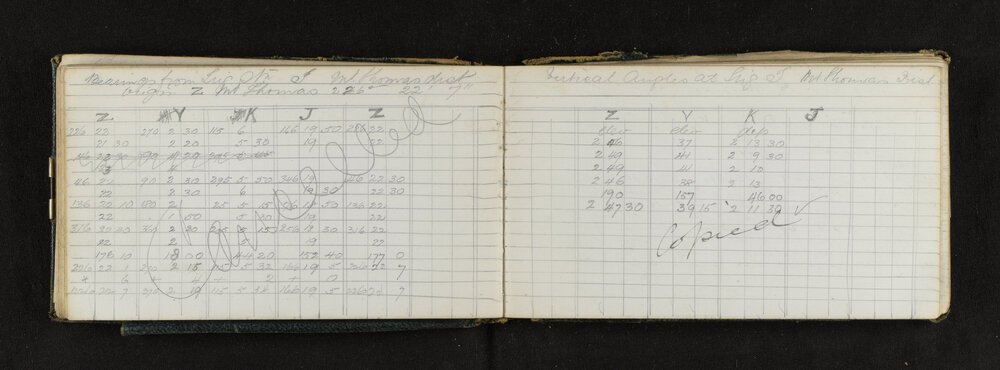 Bearings from Trig Stn J Mt Thomas Dist
Origin Z Mt Thomas 226 22 7"
Z Y K J Z
226 22 270 2 30 115 6 166 19 50 286 22
21 30 2 20 5 30 19 22
46 22 90 2 30 295 5 50 346 19 46 22 30
22 2 30 6 19 30 22 30
136 22 10 180 2 25 5 15 18 50 136 22
22 1 50 5 19 22
316 360 2 256 18 316 22
22 2 5 19 22
176 10 18 00 44 20 152 40 177 0
226 22 1 270 2 15 115 5 32 166 19 5 226 22 7
+ 6 + 4 + 2 + 0
226 22 7 270 2 19 115 5 34 166 19 5 226 22 7
Cancelled
Vertical Angles at Trig J Mt Thomas Dist
Z Y K J
Elev Elev Dep
2 46 37 2 13 30
2 49 41 2 9 30
2 49 41 2 10
2 46 38 2 13
190 157 46 00
2 47 30 39 15 2 11 30 ✓
Copied